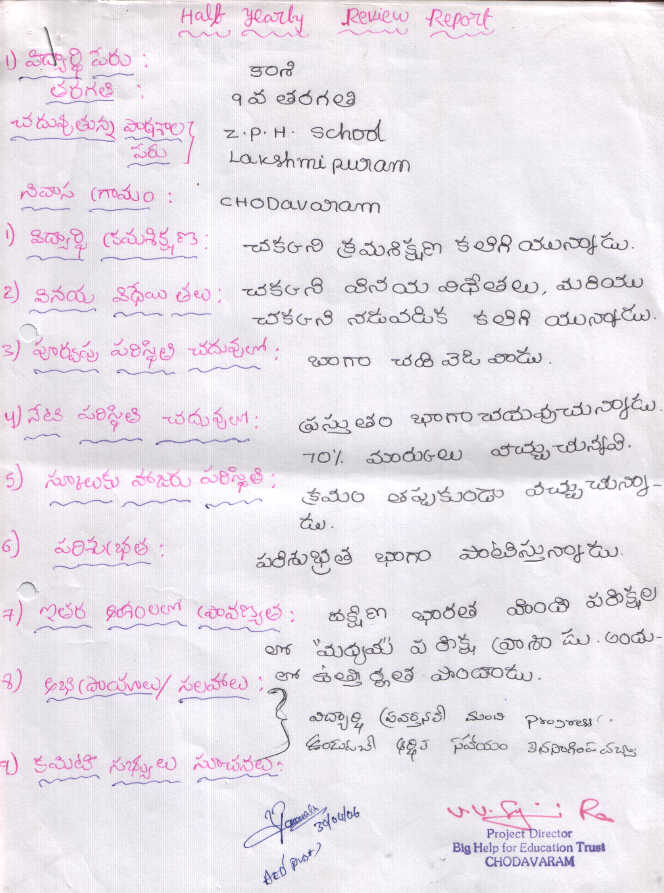 Half Yearly Review Report
1) విద్యార్థి పేరు : కాశి
తరగతి : 9 వ తరగతి
చదువుతున్న పాఠశాల పేరు } Z.P.H. School
Lakshmi puram
నివాస గ్రామం : CHODavaram
1) విద్యార్థి క్రమశిక్షణ : చక్కని క్రమశిక్షణ కలిగి యున్నాడు.
2) వినయ విధేయతలు : చక్కని వినయ విధేతలు, మరియు
చక్కని నడువడిక కలిగి యున్నాడు.
3) పూర్వపు పరిస్థితి చదువులో : బాగా చదివెడి వాడు.
4) నేటి పరిస్థితి చదువులో : ప్రస్తుతం బాగా చదువుచున్నాడు.
70% మార్కులు వచ్చుచున్నవి.
5) స్కూలుకు హాజరు పరిస్థితి : క్రమం తప్పకుండా వచ్చుచున్నా-
డు.
6) పరిశుభ్రత : పరిశుభ్రత బాగా పాటిస్తున్నాడు.
7) ఇతర అంశాలలో ప్రావీణ్యత : దక్షిణ భారత హిందీ పరీక్షల
లో "మధ్యమ" పరీక్ష వ్రాశాడు. అందు-
లో ఉత్తీర్ణత పొందాడు.
8) అభిప్రాయాలు/ సలహాలు :
విద్యార్థి ప్రవర్తన మంచి progress.
ఉండుటచే ఆర్థిక సహాయం కొనసాగింప వచ్చు
9) కమిటీ సభ్యులు సూచనలు :
30/04/06
Project Director
Big Help for Education Trust
CHODAVARAM